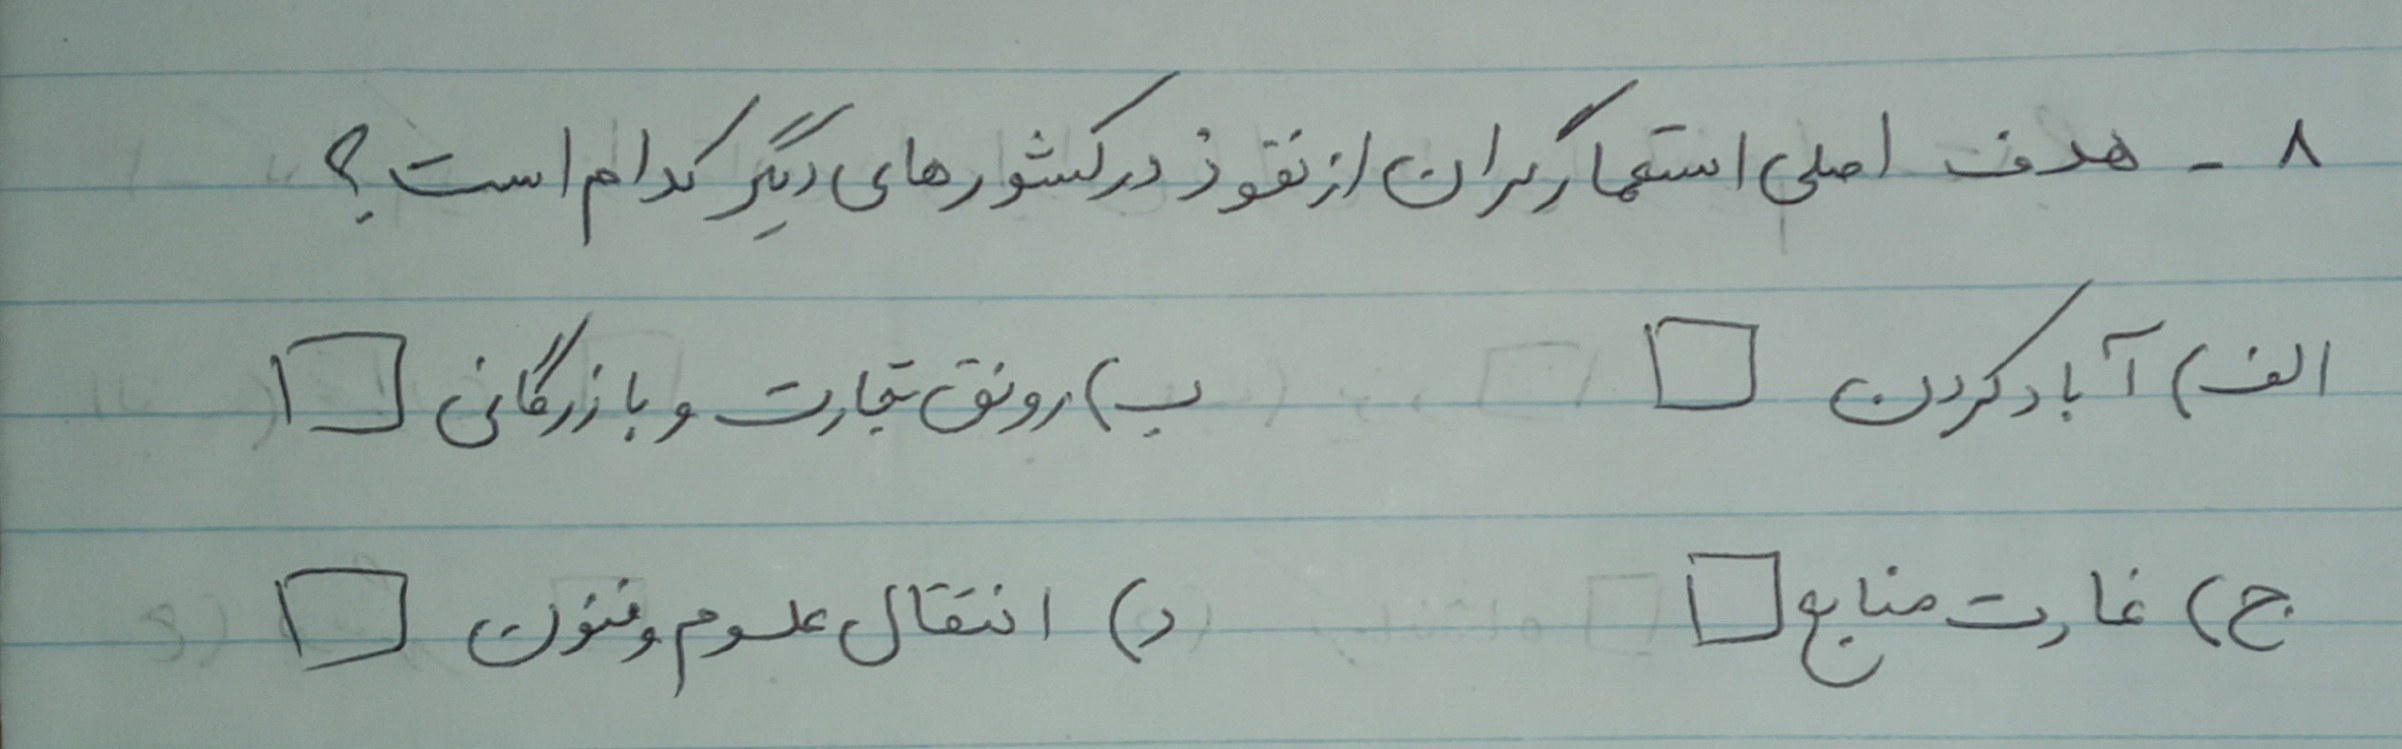 ۸ - هدف اصلی استعمارگران از نفوذ در کشورهای دیگر کدام است؟
الف) آباد کردن □ ب) رونق تجارت و بازرگانی □
ج) غارت منابع □ د) انتقال علوم و فنون □